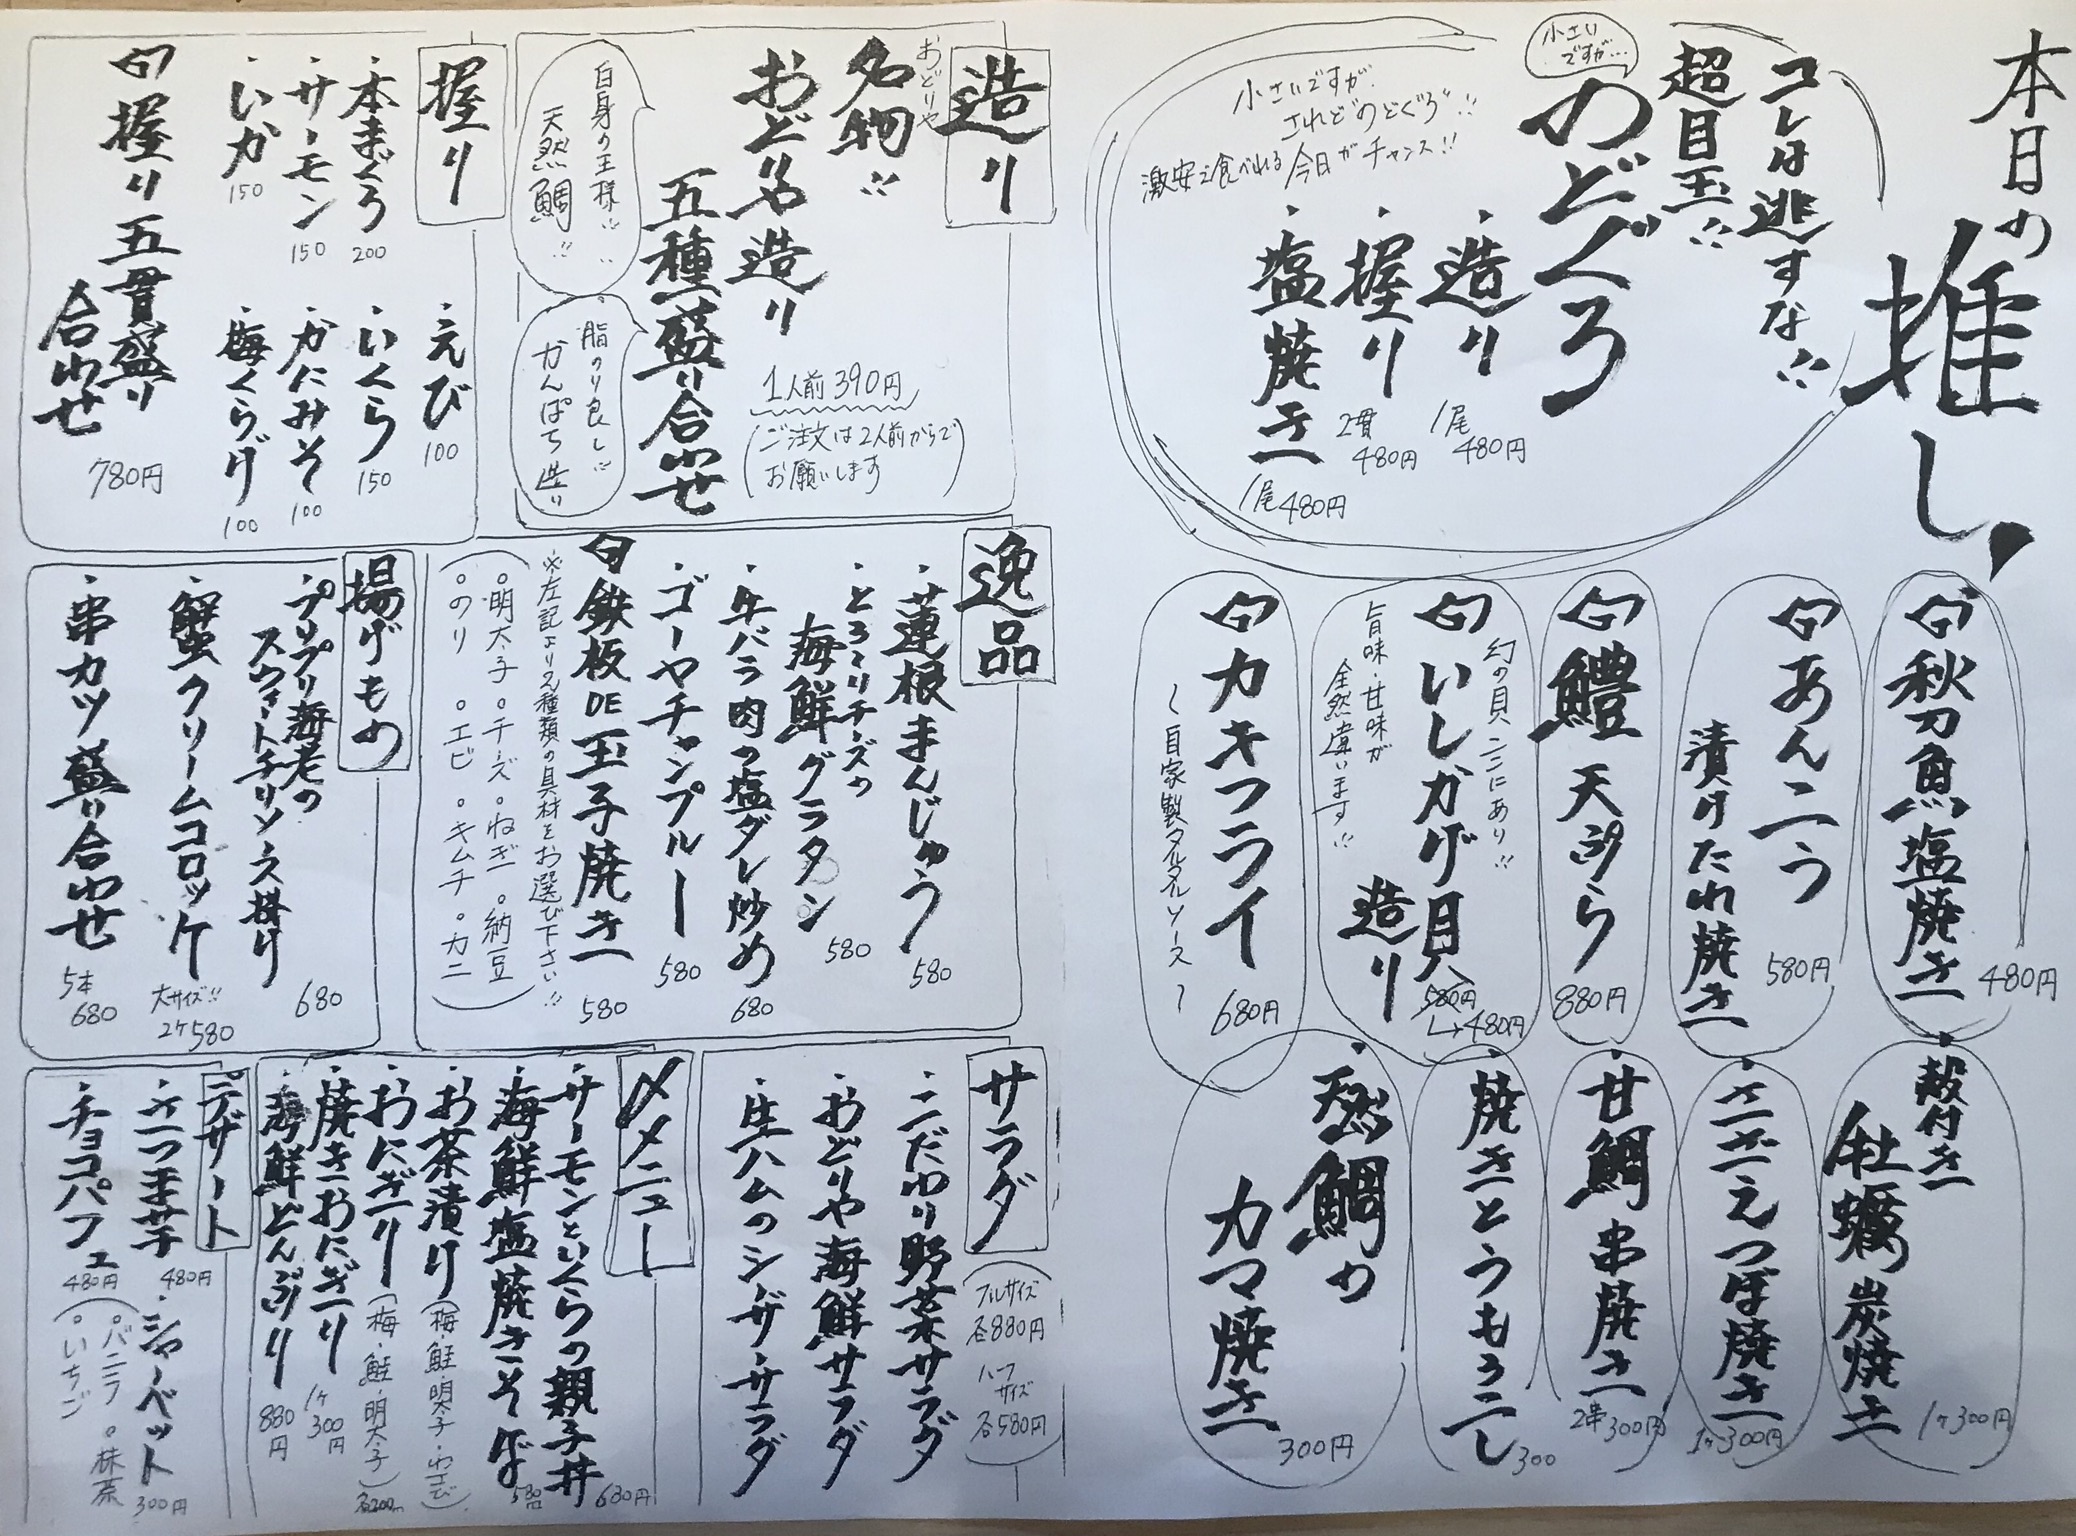 本日の推し!
コレは逃すな!!
超目玉!!
小さいですが…
のどぐろ
小さいですが、
されど"のどぐろ"!!
激安で食べれる今日がチャンス!!
・造り
1尾480円
・握り
2貫480円
・塩焼き
1尾480円
秋刀魚塩焼き
480円
あんこう
漬けたれ焼き
580円
鱧天ぷら
880円
幻の貝ここにあり!!
いしかげ貝
造り
580円
→480円
旨味・甘味が
全然違います!!
カキフライ
680円
〜自家製タルタルソース〜
・殻付き
牡蠣炭焼き
1ヶ300円
・さざえつぼ焼き
1ヶ300円
・甘鯛串焼き
2串300円
・焼きとうもろこし
300
・天然鯛の
カマ焼き
300円
造り
おどりや
名物!!
おどりや造り
五種盛り合わせ
1人前390円
(ご注文は2人前からで
お願いします)
白身の王様!!
天然鯛!!
脂のり良し!!
かんぱち造り
握り
・本まぐろ
200
・サーモン
150
・いか
150
・えび
100
・いくら
150
・かにみそ
100
・梅くらげ
100
握り五貫盛り
合わせ
780円
逸品
・蓮根まんじゅう
580
・とろ〜りチーズの
海鮮グラタン
580
・牛バラ肉の塩ダレ炒め
680
・ゴーヤチャンプルー
580
鉄板DE玉子焼き
580
※左記より2種類の具材をお選び下さい!!
(○明太子 ○チーズ ○ねぎ ○納豆
○のり ○エビ ○キムチ ○カニ)
揚げもの
・プリプリ海老の
スウィートチリソース掛け
680
・蟹クリームコロッケ
大サイズ!!
2ヶ580
・串カツ盛り合わせ
5本
680
サラダ
(フルサイズ
各880円
ハーフ
サイズ
各580円)
・こだわり野菜サラダ
・おどりや海鮮サラダ
・生ハムのシーザーサラダ
〆メニュー
・サーモンといくらの親子丼
680円
・海鮮塩焼きそば
580円
・お茶漬け(梅・鮭・明太子・わさび)
・おにぎり(梅・鮭・明太子)
各200円
・焼きおにぎり
1ヶ
300円
・海鮮どんぶり
880円
デザート
・さつま芋
480円
・チョコパフェ
480円
・シャーベット
300円
(○バニラ ○抹茶
○いちご